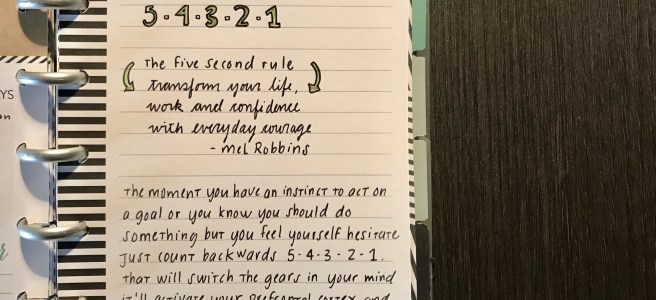 5·4·3·2·1
The five second rule
transform your life,
work and confidence
with everyday courage
- Mel Robbins
The moment you have an instinct to act on
a goal or you know you should do
something but you feel yourself hesitate
just count backwards 5·4·3·2·1.
That will switch the gears in your mind
it'll activate your prefrontal cortex and